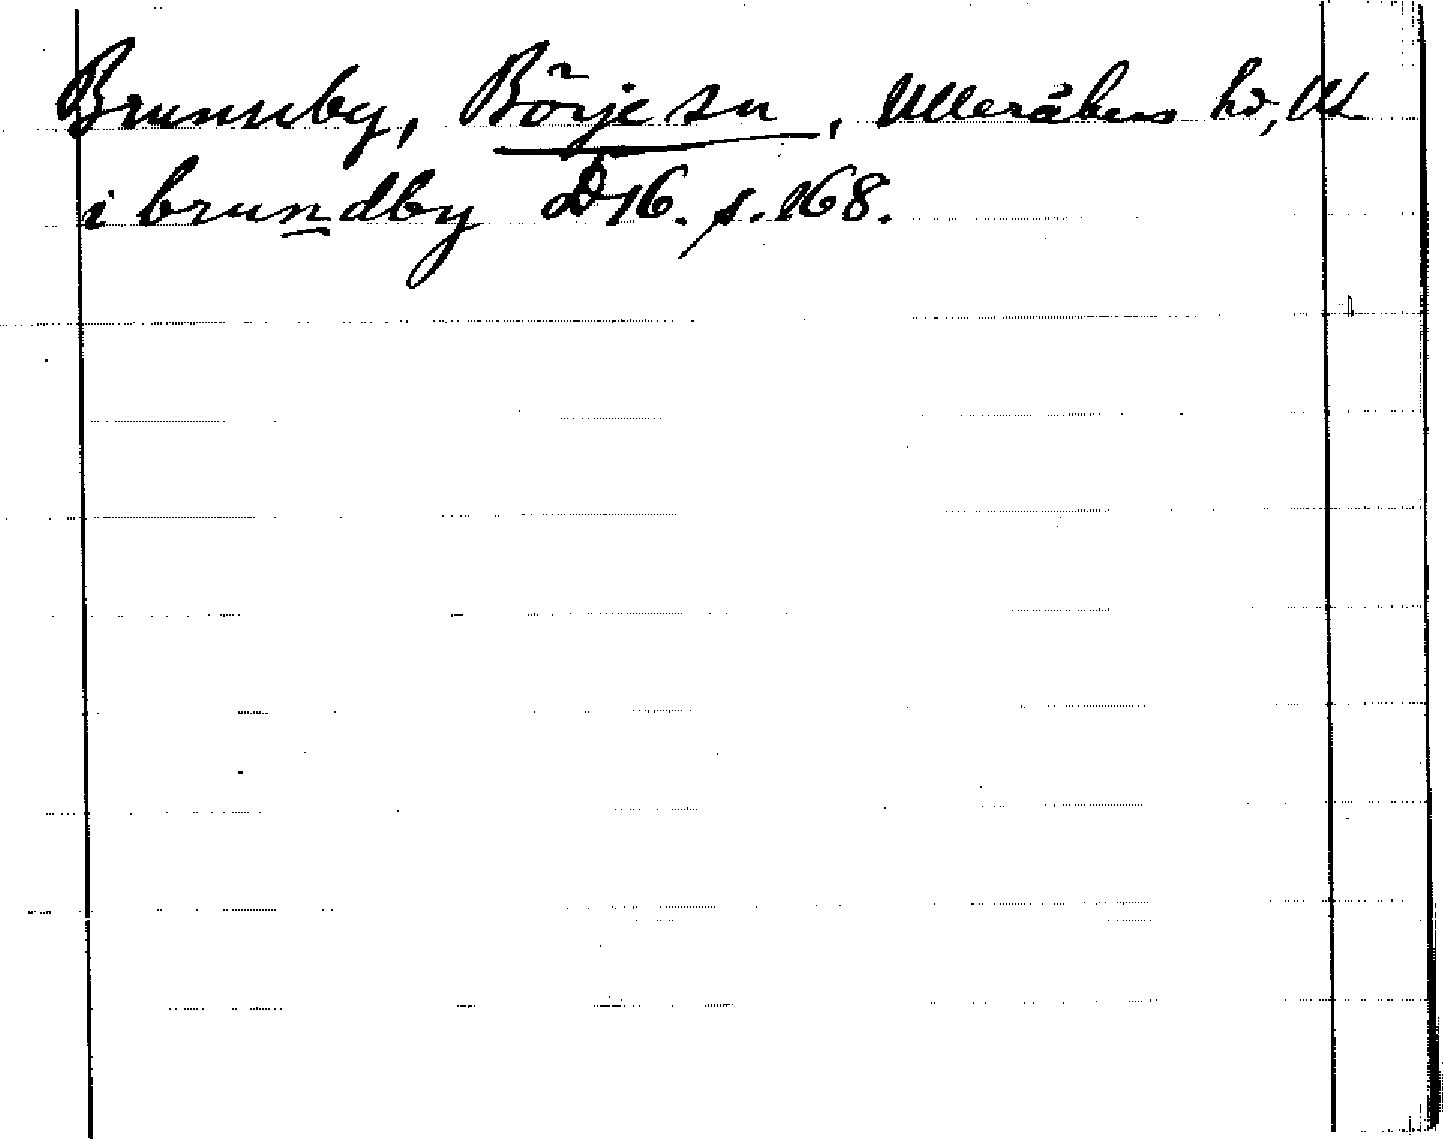 Brunnby, Börje sn, Ulleråkers hd, Upl
i brundby D16. s. 168.